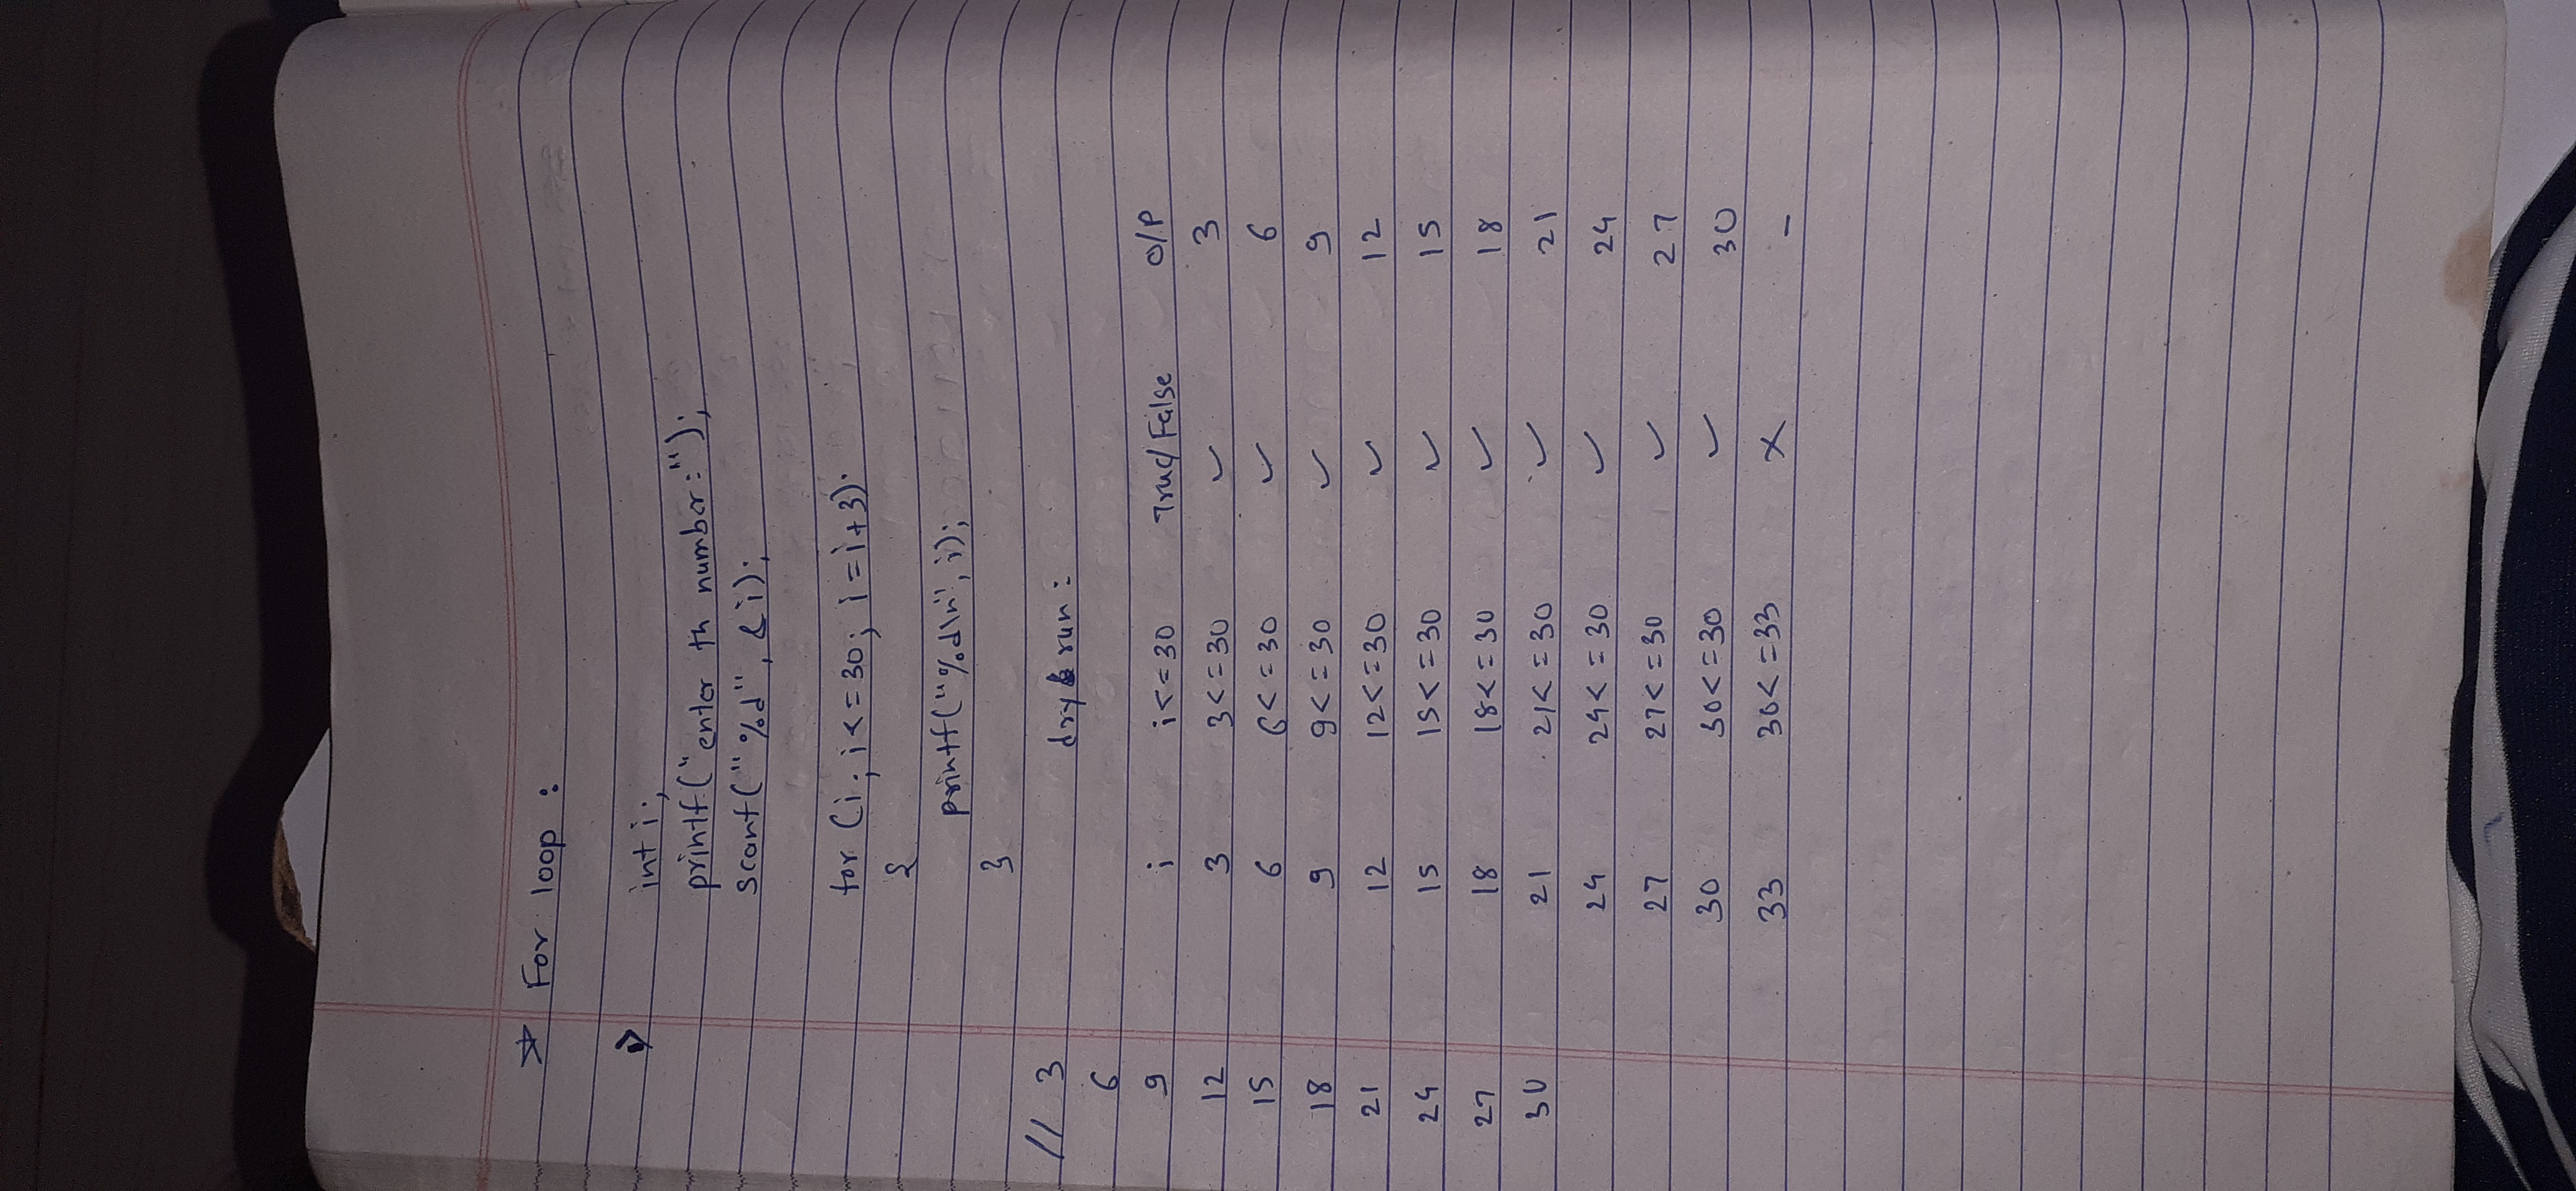 For loop :
1)
int i;
printf("enter th number:");
scanf("%d", &i);
for (i; i<=30; i=i+3)
{
printf("%d\n", i);
}
// 3
dry run :
6
9 i i<=30 True/False O/P
12 3 3<=30 ✓ 3
15 6 6<=30 ✓ 6
18 9 9<=30 ✓ 9
21 12 12<=30 ✓ 12
24 15 15<=30 ✓ 15
27 18 18<=30 ✓ 18
30 21 21<=30 ✓ 21
24 24<=30 ✓ 24
27 27<=30 ✓ 27
30 30<=30 ✓ 30
33 30<=33 × -